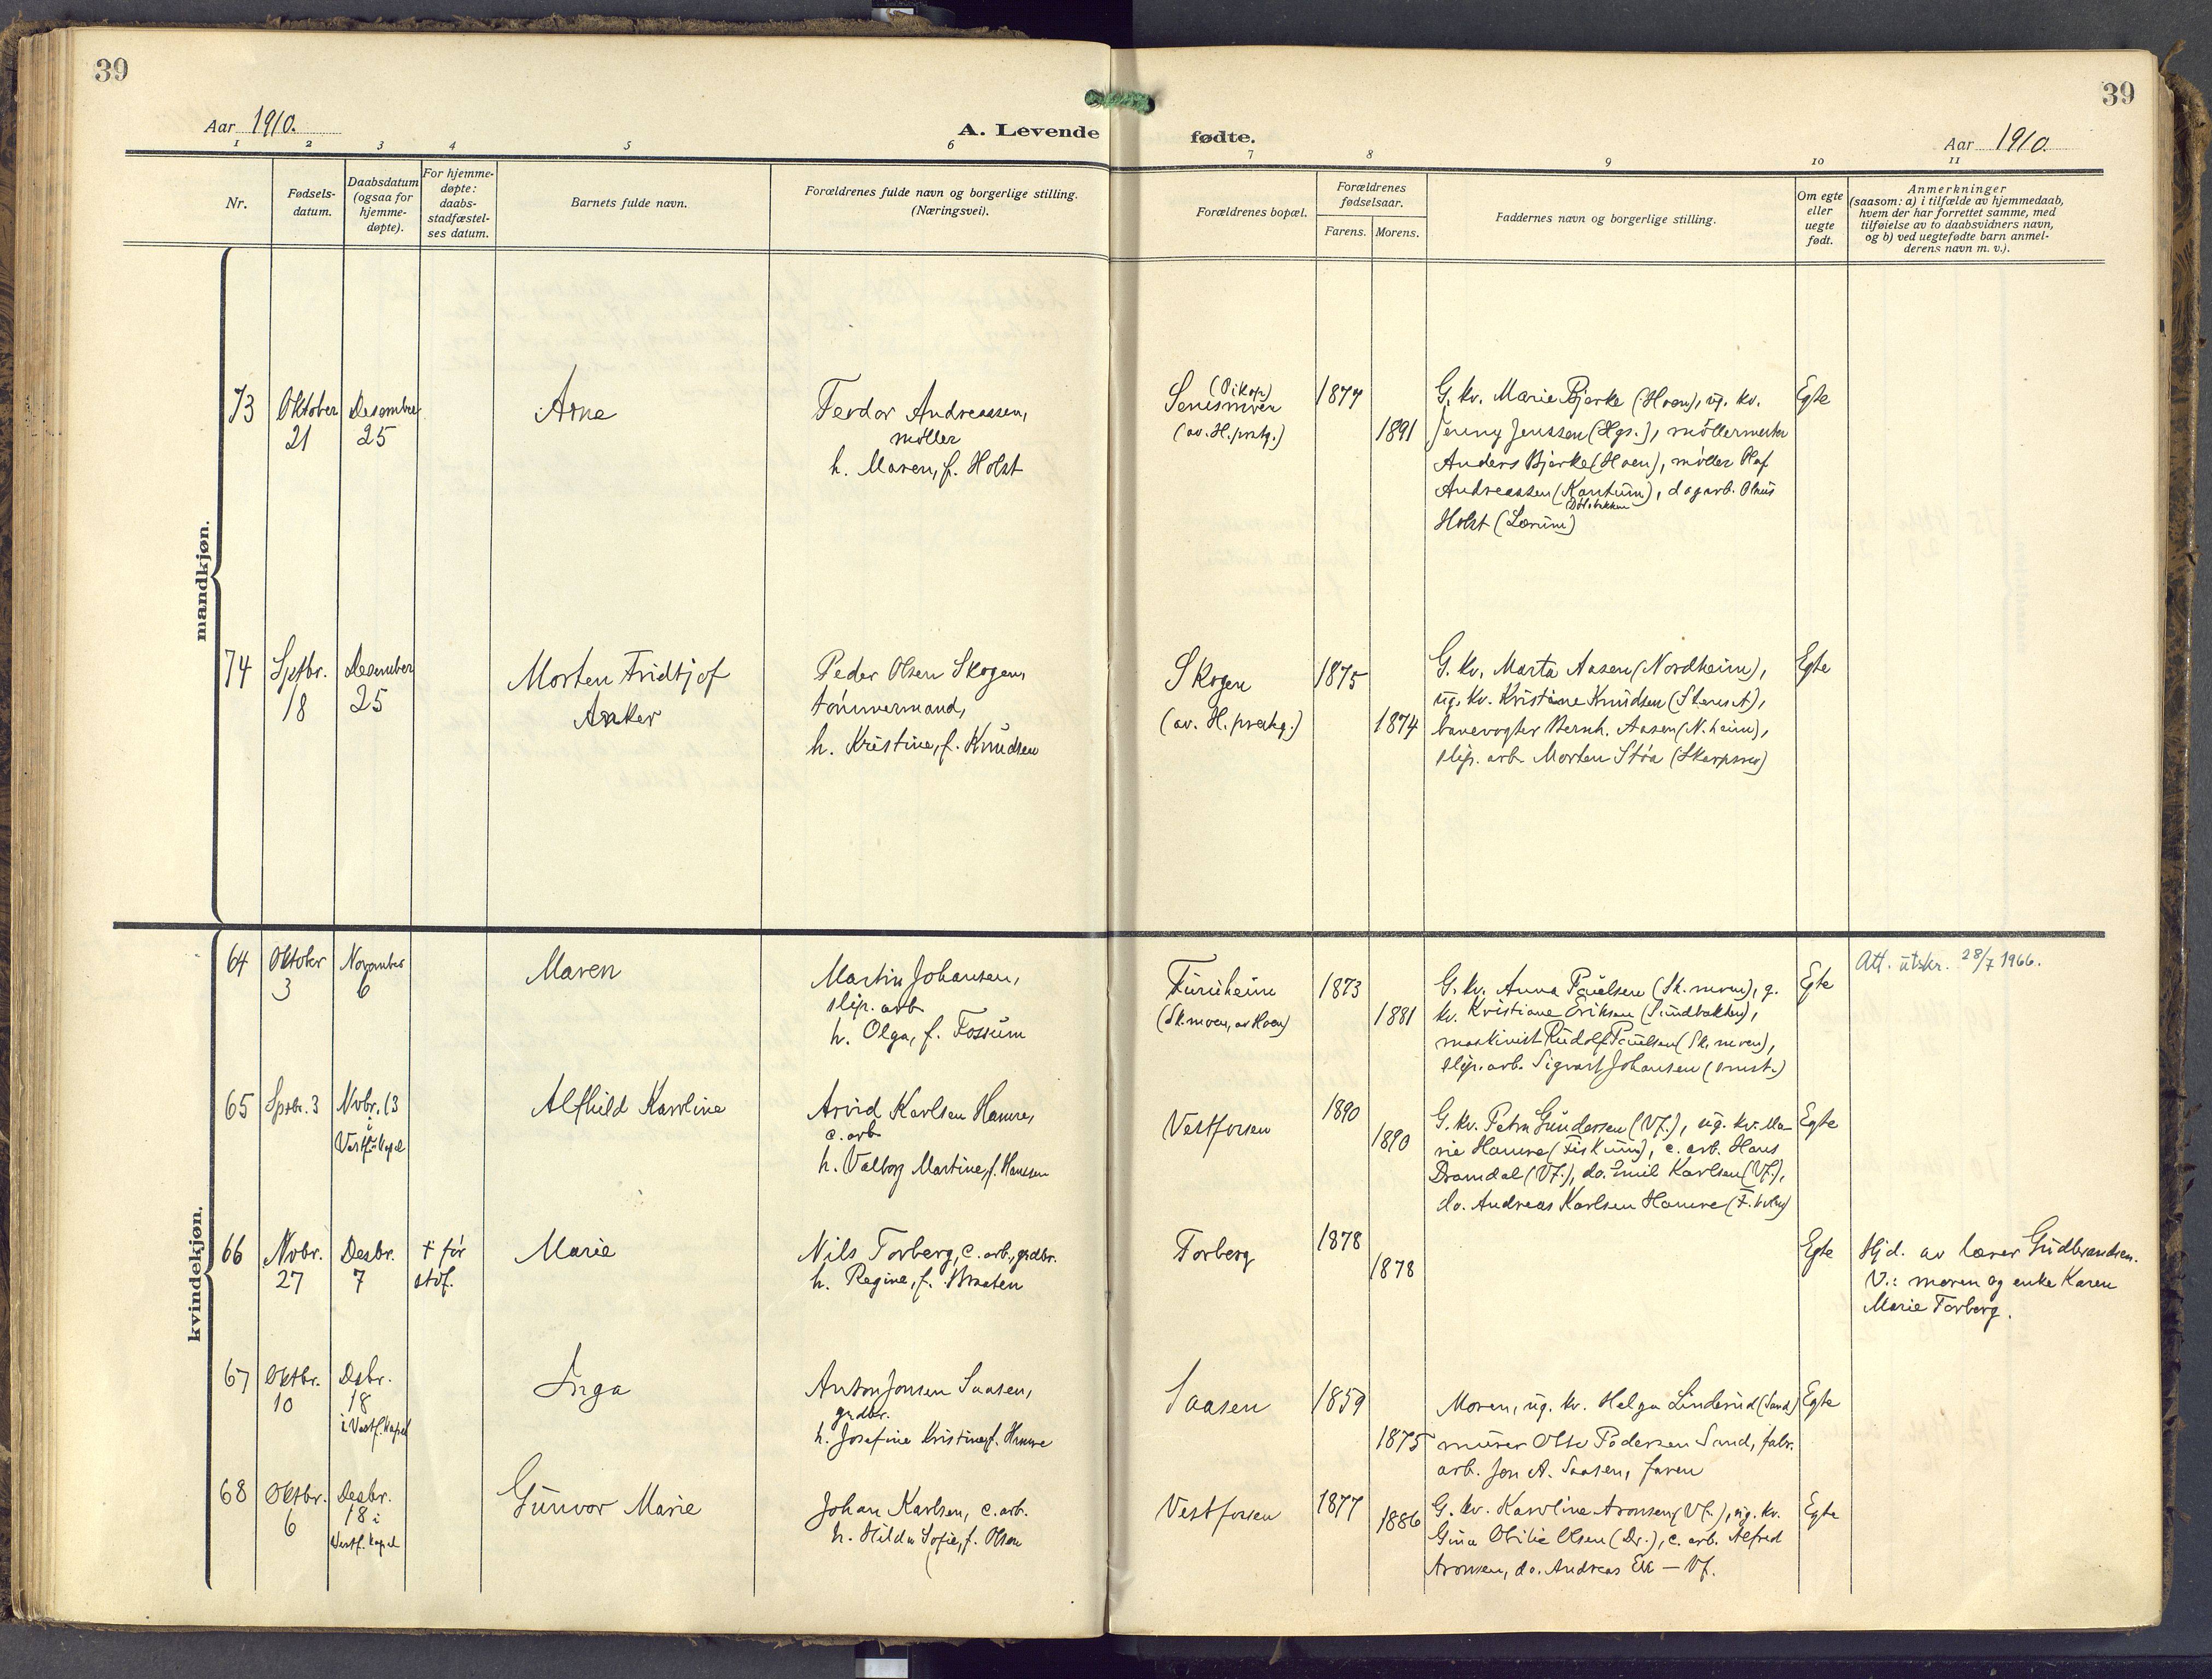 39
39
Aar 1910.
A. Levende fødte.
Aar 1910.
1 2 3 4 5 6 7 8 9 10 11
Nr.
Fødsels-
datum.
Daabsdatum
(ogsaa for
hjemme-
døpte).
For hjemme-
døpte:
daabs-
stadfæstel-
ses datum.
Barnets fulde navn.
Forældrenes fulde navn og borgerlige stilling.
(Næringsvei).
Forældrenes bopæl.
Forældrenes
fødselsaar.
Farens. Morens.
Faddernes navn og borgerlige stilling.
Om egte
eller
uegte
født.
Anmerkninger
(saasom: a) i tilfælde av hjemmedaab,
hvem der har forrettet samme, med
tilføielse av to daabsvidners navn,
og b) ved uegtefødte barn anmel-
derens navn m. v.).
mandkjøn.
73
Oktober
21
Desember
25
Arne
Ferdor Andreassen,
møller
h. Maren, f. Holst
(av. H. prstg.)
1877
1891
G. kv. Marie Bjerke (Hoen), ug. kv.
Jenny Jenssen (Hgs.), møllermester
Anders Bjerke (Hoen), møller Olaf
Andreassen (Kantum), dagarb.
Holst (Lerum)
Egte
74
Septbr.
18
Desember
25
Morten Fridtjof
Anker
Peder Olsen Skogen,
tømmermand,
h. Kristine, f. Knudsen
Skogen
(av. H. prestg.)
1875
1874
G. kv. Marta Aasen (Nordheim),
ug. kv. Kristine Knudsen
banevogter Bernh. Aasen (N.heim),
slip. arb. Morten Støa
Egte
kvindekjøn.
64
Oktober
3
November
6
Maren
Martin Johansen,
slip. arb.
h. Olga, f. Fossum
Furuheim
(Sk.moen, av Hoen)
1873
1881
G. kv. Anna Paulsen (Sk. moen), g.
kv. Kristiane Eriksen (Sundbakken),
maskinist Rudolf Paulsen (Sk. moen),
slip. arb. Sigvart Johansen
Egte
Att. utskr. 28/7 1966.
65
Septbr. 3
Nvbr. 13
i
Vestf. Kapel
Alfhild Karoline
Arvid Karlsen Hamre,
c. arb.
h. Valborg Martine, f. Hanssen
Vestfossen
1890
1890
G. kv. Petra Gundersen (Vf.), ug. kv. Ma-
rie Hamre (Fiskum), c. arb. Hans
Dramdal (Vf.), do. Emil Karlsen (Vf.),
do. Andreas Karlsen Hamre
Egte
66
Nvbr.
27
Desbr.
7
† før
stdf.
Marie
Nils Torberg, c. arb., grdbr.
h. Regine, f. Braaten
Torberg
1878
1878
Egte
Hjd. av lærer Gudbrandsen.
V.: moren og enke Karen
Marie Torberg.
67
Oktbr.
10
Dsbr.
18
i Vestf. Kapel
Inga
Anton Jonsen Saasen,
grdbr.
h. Josefine Kristine, f. Hamre
Saasen
1859
1875
Moren, ug. kv. Helga Linderud (Sand)
murer Otto Pedersen Sand, fabr.
arb. Jon A. Saasen, faren
Egte
68
Oktbr.
6
Desbr.
18 i
Vestf. kapel
Gunvor Marie
Johan Karlsen, c. arb.
h. Hilda Sofie, f. Olsen
Vestfossen
1877
1886
G. kv. Karoline Aronsen (Vf.), ug. kv.
Gina Otilie Olsen (Dr.), c. arb. Alfred
Aronsen, do. Andreas Ek — Vf.
Egte